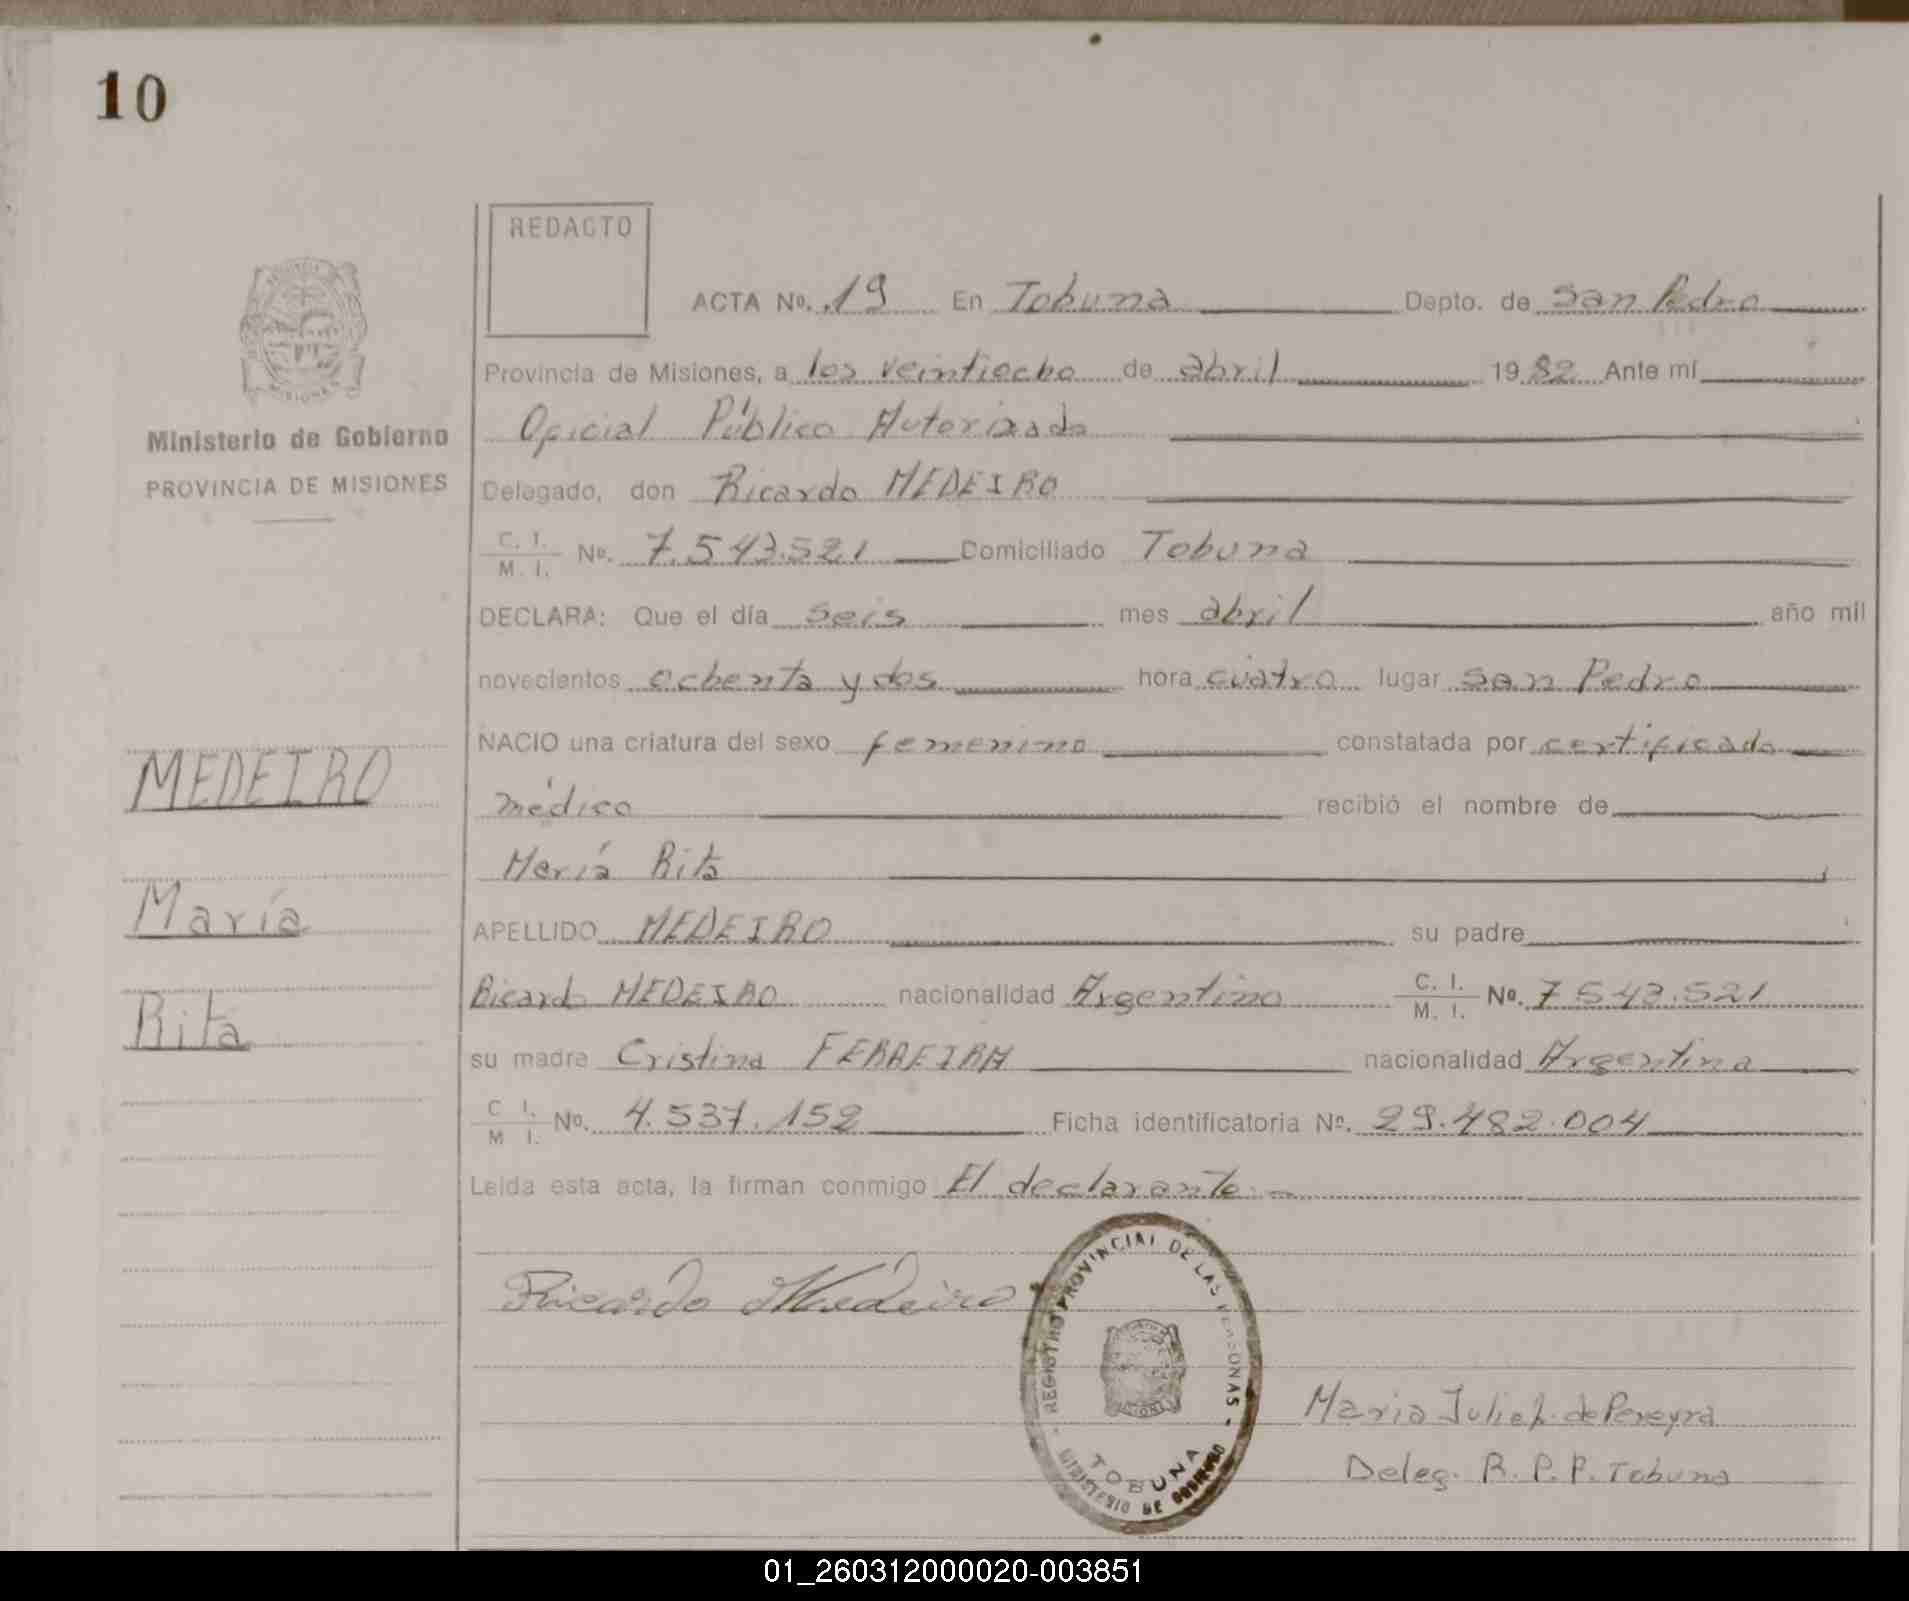 10
REDACTO
ACTA Nº. 19 En Tobuna Depto. de San Pedro
Provincia de Misiones, a los veintiocho de abril 1982 Ante mí
Oficial Público Autorizado
Delegado, don Ricardo MEDEIRO
C. I. / M. I. Nº. 7.543.521 Domiciliado Tobuna
DECLARA: Que el día seis mes abril año mil
novecientos ochenta y dos hora cuatro lugar San Pedro
NACIO una criatura del sexo femenino constatada por certificado
médico recibió el nombre de
María Rita
APELLIDO MEDEIRO su padre
Ricardo MEDEIRO nacionalidad Argentino C. I. / M. I. Nº. 7.543.521
su madre Cristina FERREIRA nacionalidad Argentina
C I. / M I. Nº. 4.537.152 Ficha identificatoria Nº. 29.482.004
Leída esta acta, la firman conmigo El declarante.-
Ricardo Medeiro
Maria Julia de Pereyra
Deleg. R. P. P. Tobuna
Ministerio de Gobierno
PROVINCIA DE MISIONES
MEDEIRO
María
Rita
PROVINCIA MISIONES
REGISTRO PROVINCIAL DE LAS PERSONAS -
TOBUNA
MINISTERIO DE GOBIERNO
01_260312000020-003851